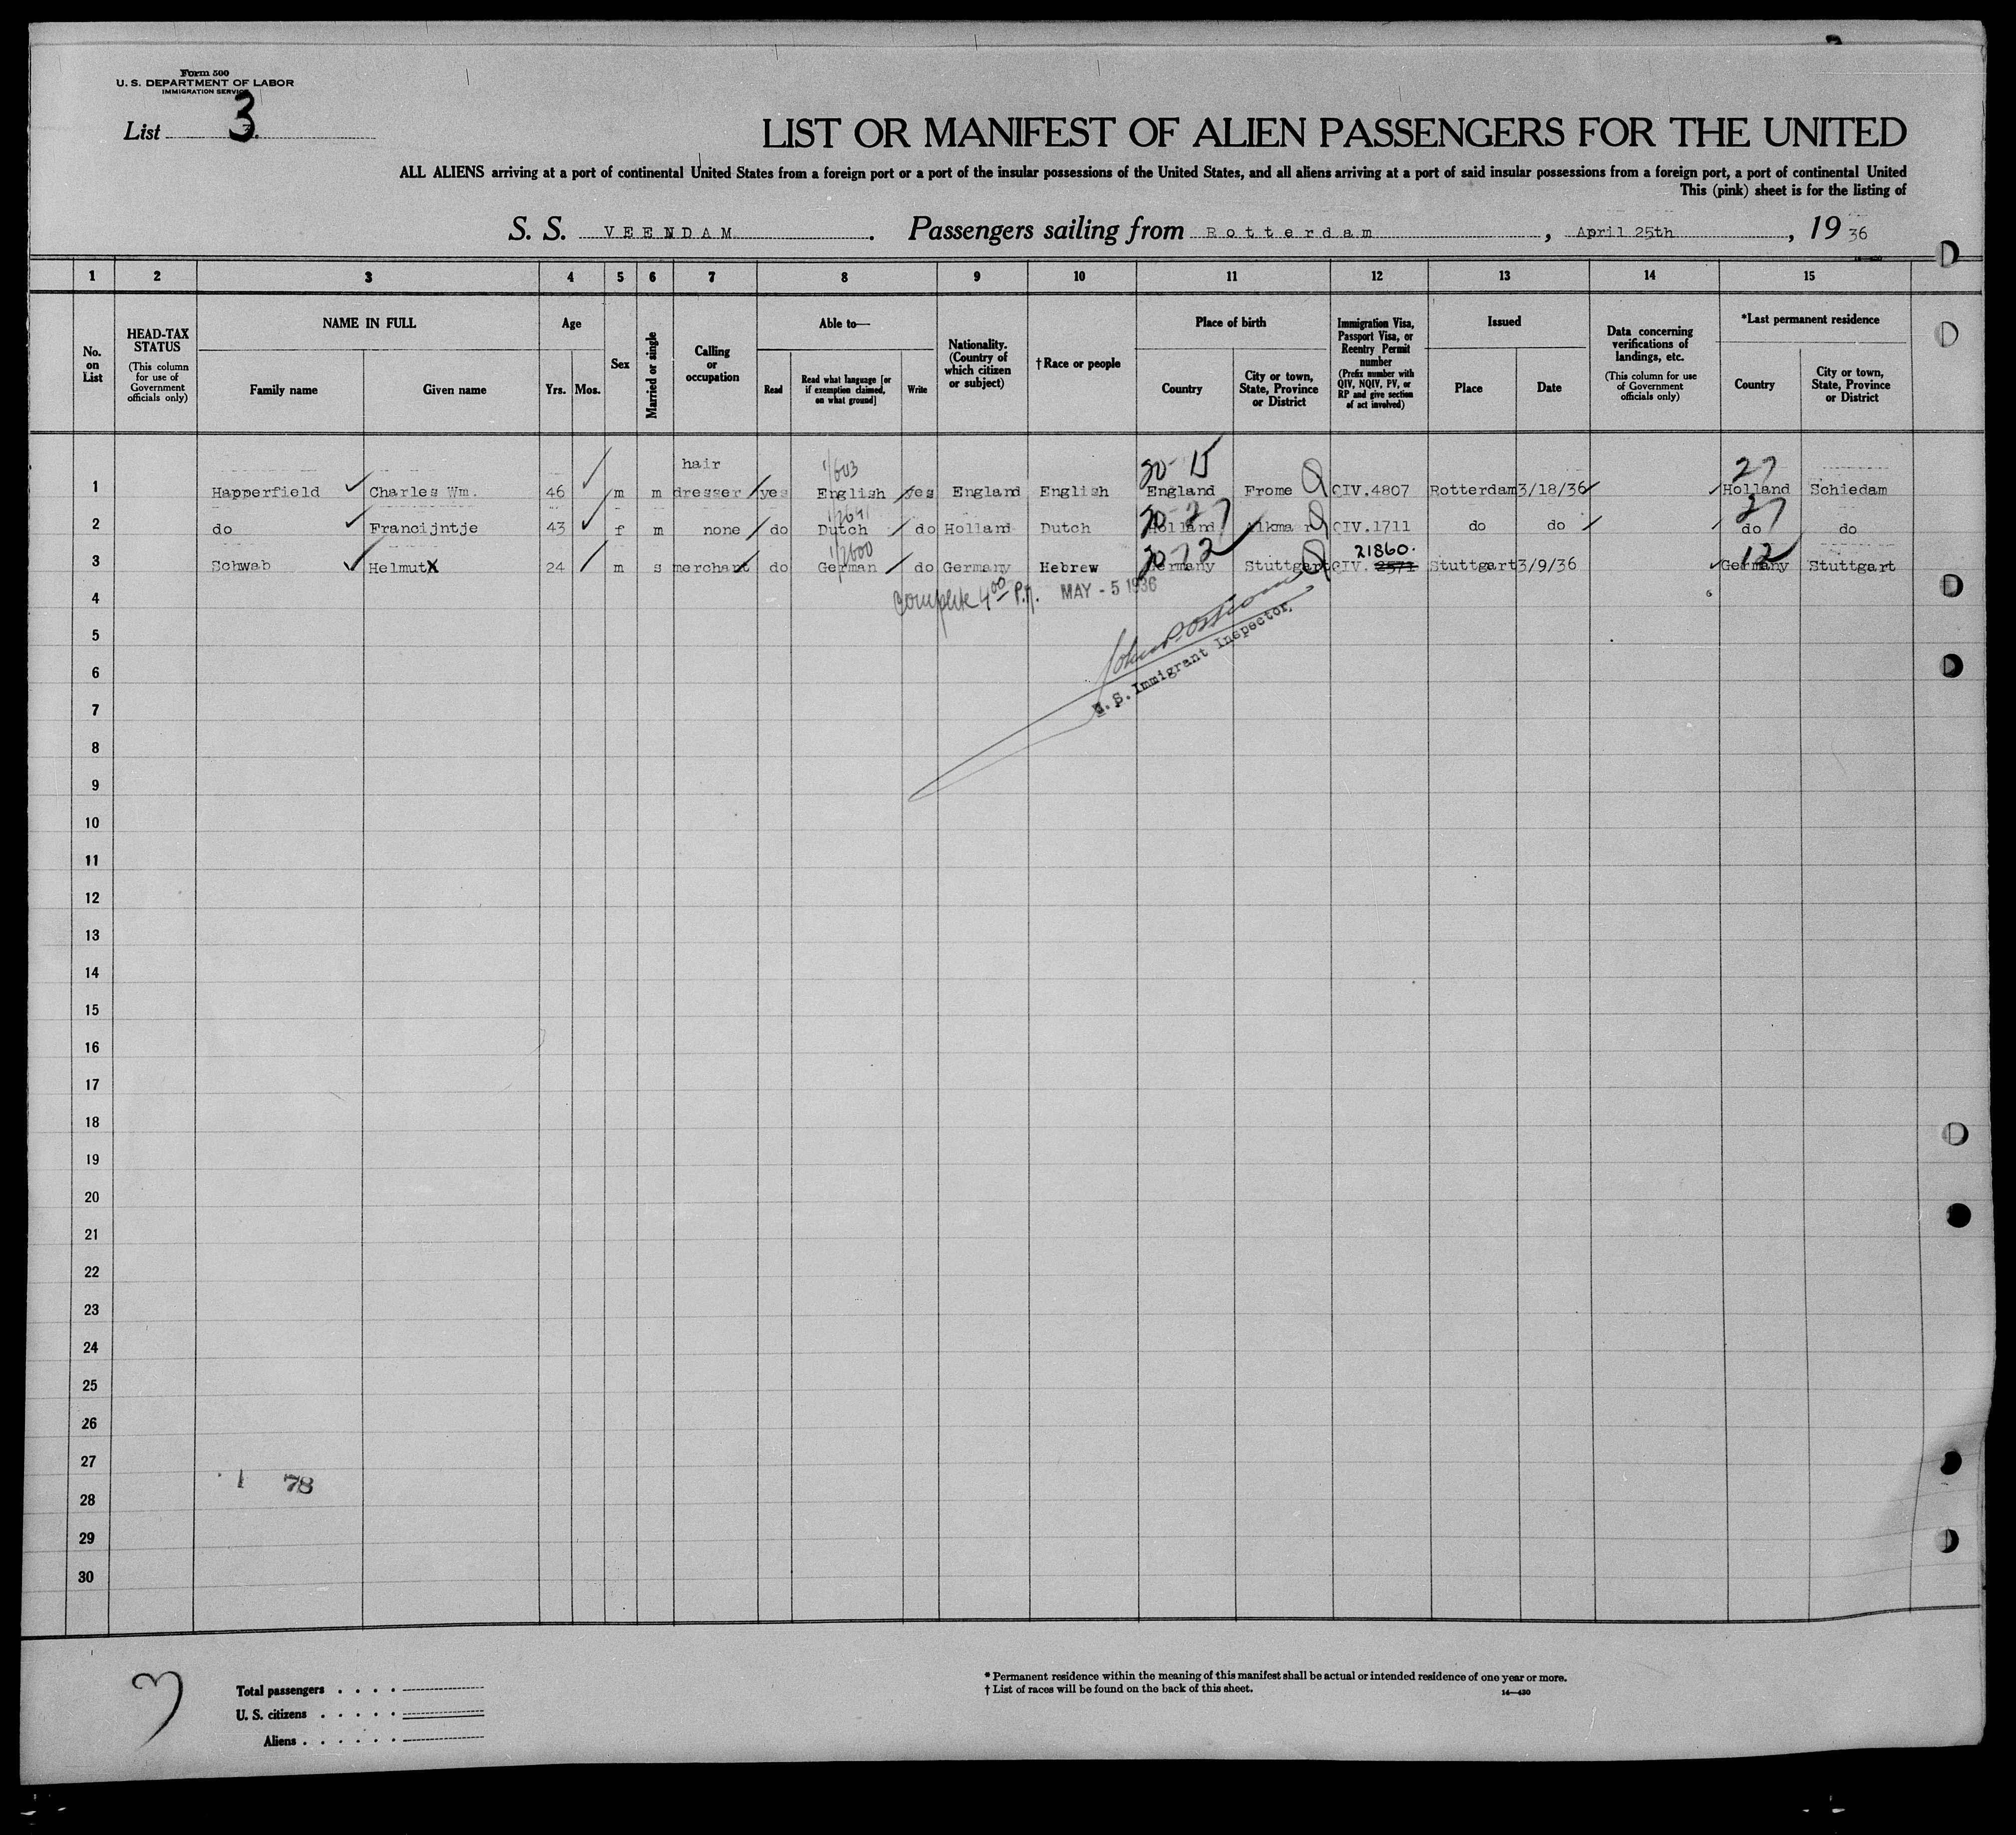 Form 500
U. S. DEPARTMENT OF LABOR
IMMIGRATION SERVICE
List 3
LIST OR MANIFEST OF ALIEN PASSENGERS FOR THE UNITED
ALL ALIENS arriving at a port of continental United States from a foreign port or a port of the insular possessions of the United States, and all aliens arriving at a port of said insular possessions from a foreign port, a port of continental United
This (pink) sheet is for the listing of
S. S. VEENDAM. Passengers sailing from Rotterdam, April 25th, 19 36
1 2 3 4 5 6 7 8 9 10 11 12 13 14 15
No. on List
HEAD-TAX STATUS (This column for use of Government officials only)
NAME IN FULL Family name Given name
Age Yrs. Mos.
Sex
Married or single
Calling or occupation
Able to— Read Read what language [or if exemption claimed, on what ground] Write
Nationality. (Country of which citizen or subject)
† Race or people
Place of birth Country City or town, State, Province or District
Immigration Visa, Passport Visa, or Reentry Permit number (Prefix number with QIV, NQIV, PV, or RP and give section of act involved)
Issued Place Date
Data concerning verifications of landings, etc. (This column for use of Government officials only)
*Last permanent residence Country City or town, State, Province or District
hair 20 15 27
1 Happerfield Charles Wm. 46 m m dresser yes English yes England English England Frome QIV.4807 Rotterdam 3/18/36 Holland Schiedam
20 27 27
2 do Francijntje 43 f m none do Dutch do Holland Dutch Holland QIV.1711 do do do do
1/2600 20 12 21860. 12
3 Schwab Helmut 24 m s merchant do German do Germany Hebrew Germany Stuttgart QIV. 2571 Stuttgart 3/9/36 Germany Stuttgart
Complete 4 00 P.M. MAY - 5 1936
4
5
U. S. Immigrant Inspector.
6
7
8
9
10
11
12
13
14
15
16
17
18
19
20
21
22
23
24
25
26
27
1 78
28
29
30
3
Total passengers . . . .
U. S. citizens . . . . .
Aliens . . . . . .
* Permanent residence within the meaning of this manifest shall be actual or intended residence of one year or more.
† List of races will be found on the back of this sheet.
14—430